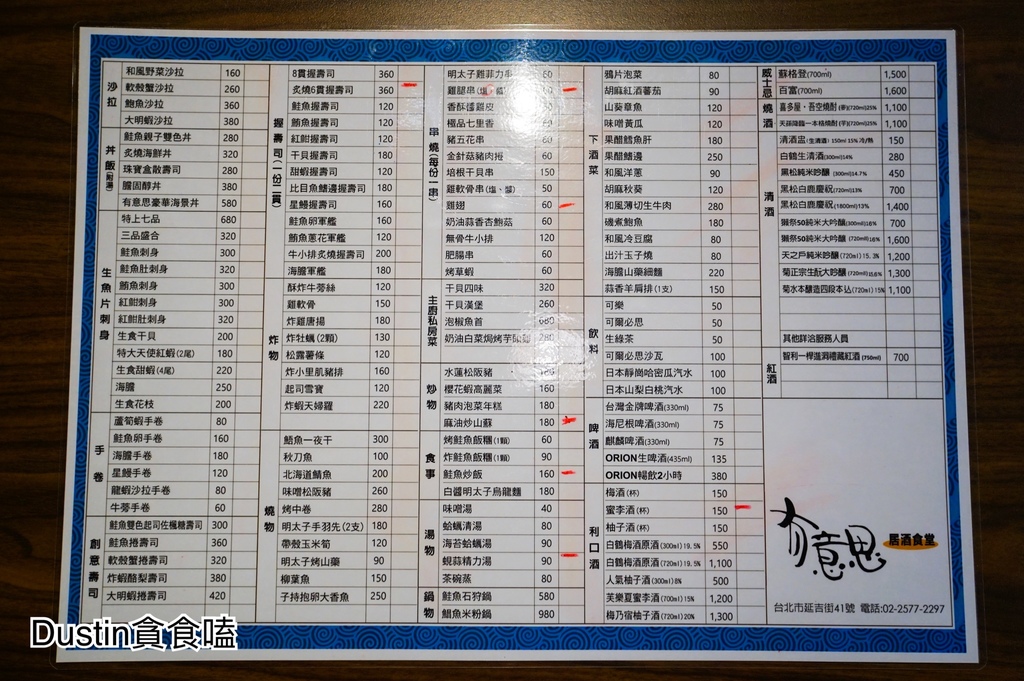 沙拉
和風野菜沙拉 160
軟殼蟹沙拉 260
鮑魚沙拉 360
大明蝦沙拉 380
丼飯(附湯)
鮭魚親子雙色丼 280
炙燒海鮮丼 320
珠寶盒散壽司 280
膽固醇丼 380
有意思豪華海景丼 580
生魚片刺身
特上七品 680
三品盛合 320
鮭魚刺身 300
鮭魚肚刺身 320
鮪魚刺身 300
紅魽刺身 300
紅魽肚刺身 320
生食干貝 200
特大天使紅蝦(2尾) 180
生食甜蝦(4尾) 220
海膽 250
生食花枝 200
手卷
蘆筍蝦手卷 80
鮭魚卵手卷 160
海膽手卷 180
星鰻手卷 120
龍蝦沙拉手卷 80
牛蒡手卷 60
創意壽司
鮭魚雙色起司佐楓糖壽司 300
鮭魚捲壽司 360
軟殼蟹捲壽司 320
炸蝦酪梨壽司 380
大明蝦捲壽司 420
握壽司(一份二貫)
8貫握壽司 360
炙燒6貫握壽司 360
鮭魚握壽司 120
鮪魚握壽司 120
紅魽握壽司 120
干貝握壽司 180
甜蝦握壽司 120
比目魚鰭邊握壽司 180
星鰻握壽司 160
鮭魚卵軍艦 160
鮪魚蔥花軍艦 160
牛小排炙燒握壽司 200
海膽軍艦 180
炸物
酥炸牛蒡絲 120
雞軟骨 150
炸雞唐揚 180
炸牡蠣(2顆) 130
松露薯條 120
炸小里肌豬排 160
起司雪寶 120
炸蝦天婦羅 220
燒物
鯃魚一夜干 300
秋刀魚 100
北海道鯖魚 200
味噌松阪豬 260
烤中卷 280
明太子手羽先(2支) 180
帶殼玉米筍 120
明太子烤山藥 90
柳葉魚 150
子持抱卵大香魚 250
串燒(每份一串)
明太子雞菲力串 60
雞腿串(塩、醬) 60
香酥醬雞皮 30
極品七里香 60
豬五花串 60
金針菇豬肉捲 60
培根干貝串 150
雞軟骨串(塩、醬) 50
雞翅 60
奶油蒜香杏鮑菇 60
無骨牛小排 120
肥腸串 60
烤草蝦 60
主廚私房菜
干貝四味 320
干貝漢堡 260
泡椒魚首 680
奶油白菜焗烤芋 280
炒物
水蓮松阪豬 160
櫻花蝦高麗菜 160
豬肉泡菜年糕 180
麻油炒山蘇 180
食事
烤鮭魚飯糰(1顆) 60
炸鮭魚飯糰(1顆) 90
鮭魚炒飯 160
白醬明太子烏龍麵 180
湯物
味噌湯 40
蛤蠣清湯 80
海苔蛤蠣湯 90
蜆蒜精力湯 90
茶碗蒸 80
鍋物
鮭魚石狩鍋 580
鯧魚米粉鍋 980
下酒菜
鴉片泡菜 80
胡麻紅酒蕃茄 90
山葵章魚 120
味噌黃瓜 120
果醋鱈魚肝 180
果醋鰭邊 250
和風洋蔥 90
胡麻秋葵 120
和風薄切生牛肉 280
磯煮鮑魚 180
和風冷豆腐 80
出汁玉子燒 80
海膽山藥細麵 220
蒜香羊肩排(1支) 150
飲料
可樂 50
可爾必思 50
生綠茶 50
可爾必思沙瓦 100
日本靜崗哈密瓜汽水 100
日本山梨白桃汽水 100
啤酒
台灣金牌啤酒(330ml) 75
海尼根啤酒(330ml) 75
麒麟啤酒(330ml) 75
ORION生啤酒(435ml) 135
ORION暢飲2小時 380
利口酒
梅酒(杯) 150
蜜李酒(杯) 150
柚子酒(杯) 150
白鶴梅酒原酒(300ml)19.5% 550
白鶴梅酒原酒(720ml)19.5% 1,100
人氣柚子酒(300ml)8% 500
芙樂夏蜜李酒(700ml)15% 1,200
梅乃宿柚子酒(720ml)20% 1,300
威士忌
蘇格登(700ml) 1,500
百富(700ml) 1,600
燒酒
喜多屋‧吾空燒酎(麥)(720ml)25% 1,100
天孫降臨一本格燒酎(芋)(720ml)25% 1,100
清酒
清酒壺(生清酒)150ml 15% 冷/熱 150
白鶴生清酒(300ml)14% 280
黑松純米吟釀(300ml)14.7% 450
黑松白鹿慶祝(720ml)13% 700
黑松白鹿慶祝(1800ml)13% 1,400
獺祭50純米大吟釀(300ml)16% 700
獺祭50純米大吟釀(720ml)16% 1,600
天之戶純米吟釀(720ml)15.3% 1,200
菊正宗生酛大吟釀(720ml)15.6% 1,300
菊水本釀造四段本込(720ml)15% 1,100
其他詳洽服務人員
紅酒
智利一桿進洞禮藏紅酒(750ml) 700
有意思
居酒食堂
台北市延吉街41號 電話:02-2577-2297
Dustin貪食嗑